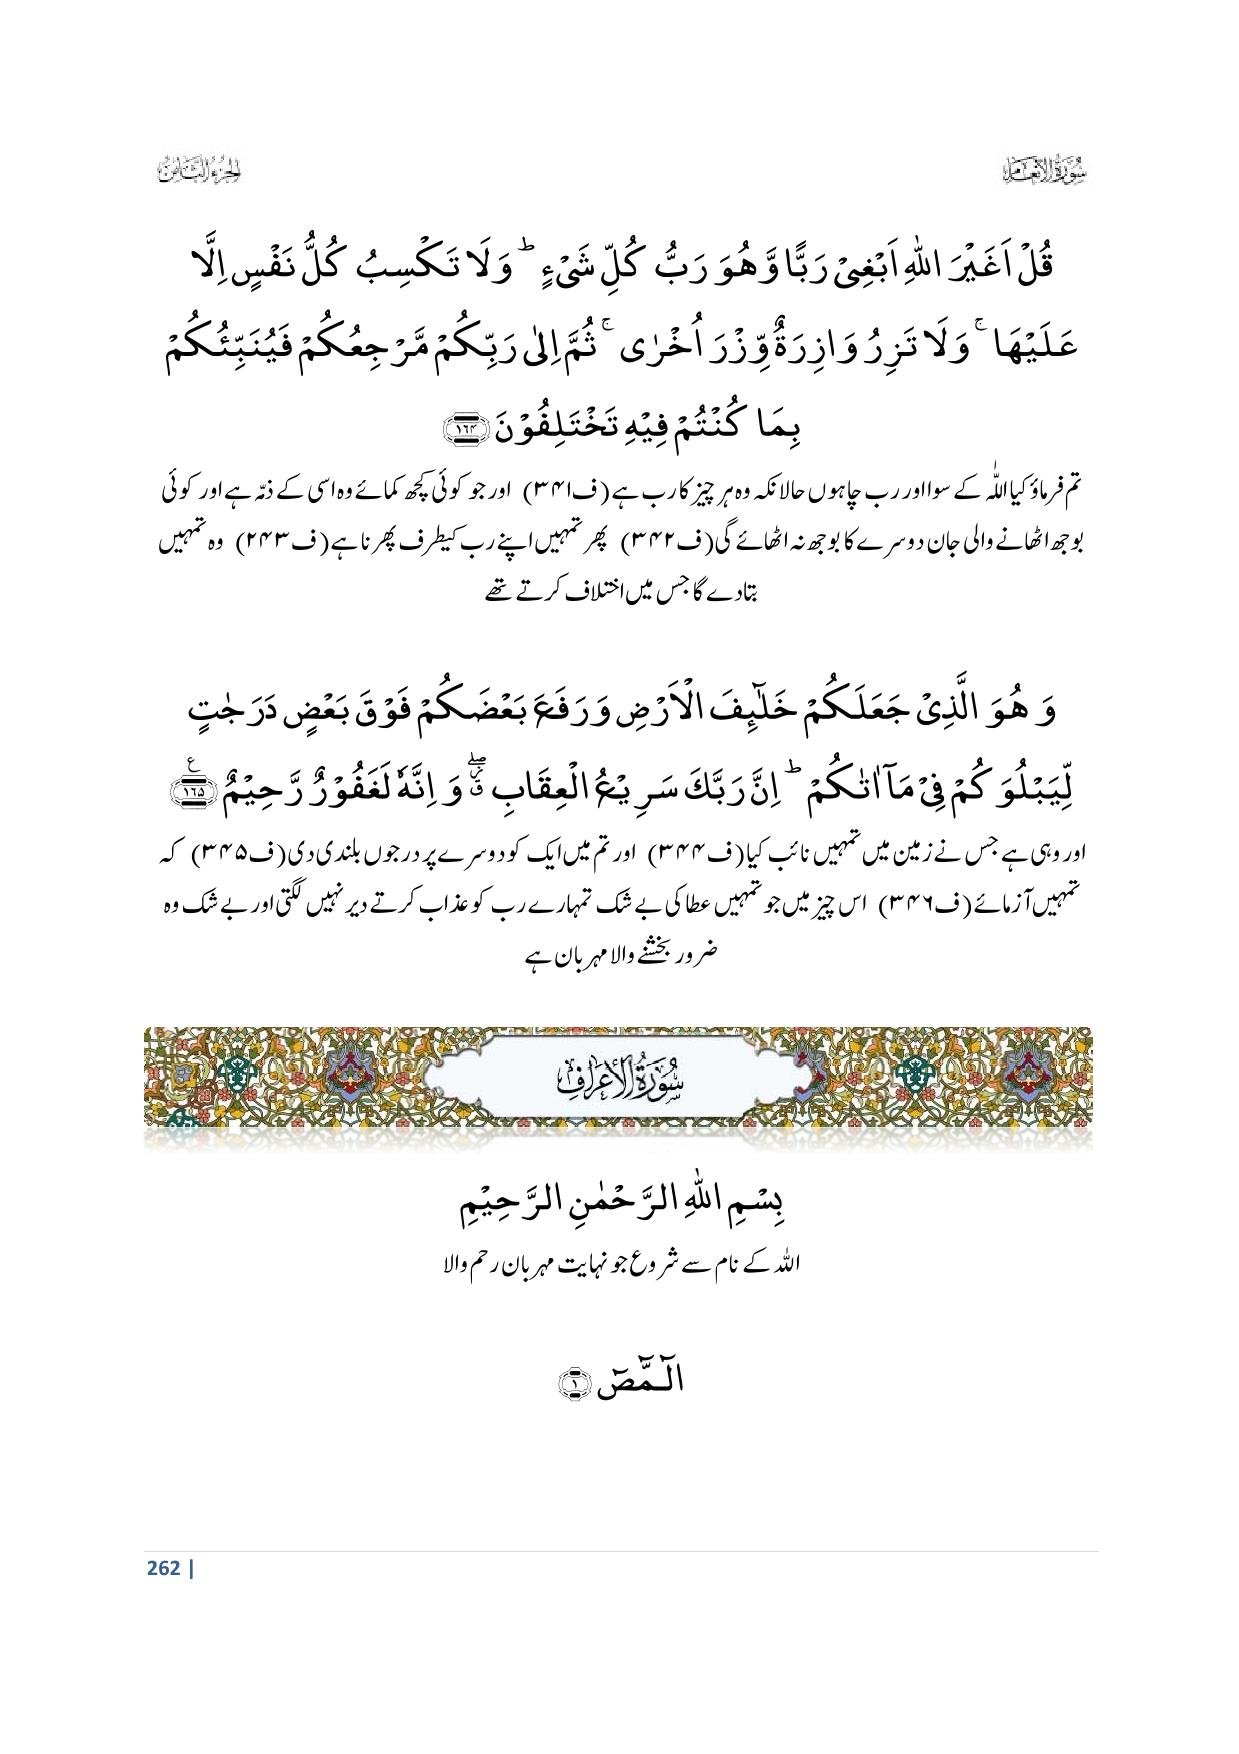 سُوۡرَةُ الۡاَنۡعَام
الجزء الثامن
قُلۡ اَغَيۡرَ اللّٰهِ اَبۡغِىۡ رَبًّا وَّهُوَ رَبُّ كُلِّ شَىۡءٍ ؕ وَلَا تَكۡسِبُ كُلُّ نَفۡسٍ اِلَّا
عَلَيۡهَا ۚ وَلَا تَزِرُ وَازِرَةٌ وِّزۡرَ اُخۡرٰى ۚ ثُمَّ اِلٰى رَبِّكُمۡ مَّرۡجِعُكُمۡ فَيُنَبِّئُكُمۡ
بِمَا كُنۡتُمۡ فِيۡهِ تَخۡتَلِفُوۡنَ ﴿۱۶۴﴾
تم فرماؤ کیا اللّٰہ کے سوا اور رب چاہوں حالانکہ وہ ہر چیز کا رب ہے (ف۳۴۱) اور جو کوئی کچھ کمائے وہ اسی کے ذمّہ ہے اور کوئی
بوجھ اٹھانے والی جان دوسرے کا بوجھ نہ اٹھائے گی (ف۳۴۲) پھر تمہیں اپنے رب کیطرف پھرنا ہے (ف۲۴۳) وہ تمہیں
بتادے گا جس میں اختلاف کرتے تھے
وَهُوَ الَّذِىۡ جَعَلَكُمۡ خَلٰٓئِفَ الۡاَرۡضِ وَرَفَعَ بَعۡضَكُمۡ فَوۡقَ بَعۡضٍ دَرَجٰتٍ
لِّيَبۡلُوَكُمۡ فِىۡ مَاۤ اٰتٰٮكُمۡ ؕ اِنَّ رَبَّكَ سَرِيۡعُ الۡعِقَابِ ۖ وَاِنَّهٗ لَغَفُوۡرٌ رَّحِيۡمٌ ﴿۱۶۵﴾ ع
اور وہی ہے جس نے زمین میں تمہیں نائب کیا (ف۳۴۴) اور تم میں ایک کو دوسرے پر درجوں بلندی دی (ف۳۴۵) کہ
تمہیں آزمائے (ف۳۴۶) اس چیز میں جو تمہیں عطا کی بے شک تمہارے رب کو عذاب کرتے دیر نہیں لگتی اور بے شک وہ
ضرور بخشنے والا مہربان ہے
سُوۡرَةُ الۡاَعۡرَاف
بِسۡمِ اللّٰهِ الرَّحۡمٰنِ الرَّحِيۡمِ
اللّٰہ کے نام سے شروع جو نہایت مہربان رحم والا
الٓـمّٓصٓ ﴿۱﴾
262 |